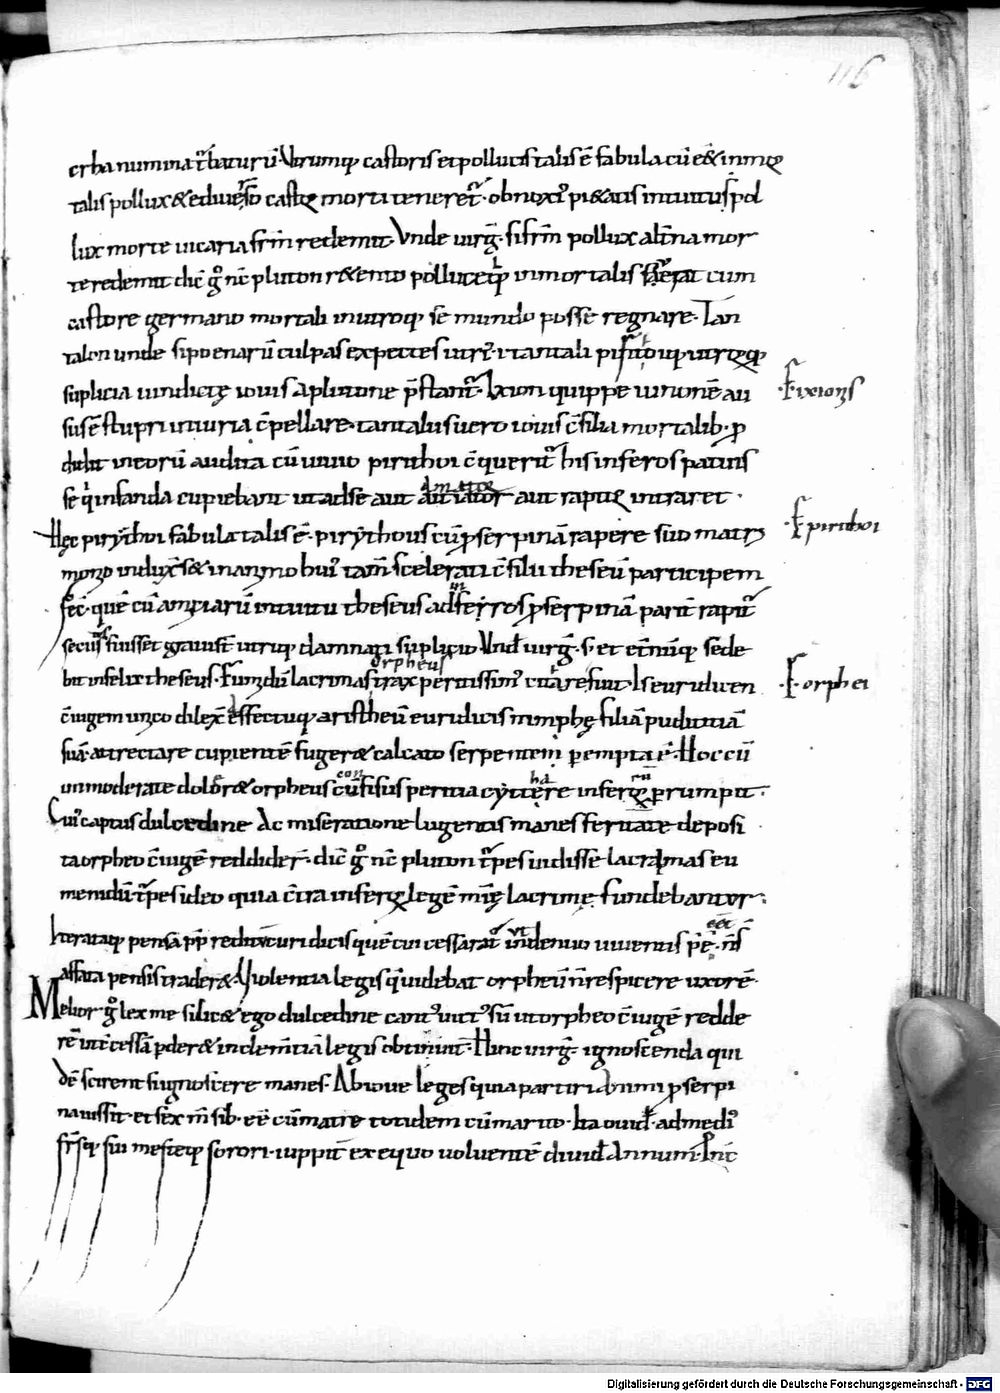 116
erba numina t̄baturū. Utrumq; castoris et pollucis talis ē fabula cū e& inmor
talis pollux & ediverso castor morti teneret᷑ obnoxi᷒ pi&atis intuitus pol
lux morte vicaria frm̄ redemit. Unde virḡ. si frm̄ pollux alt̄na mor
te redemit dic̄ ḡ nc̄ pluton r&ento polluce inmortalis cum
castore germano mortali in utroq; se mundo posse regnare. Tan
talon unde si poenarū culpas expectes
suplicia vindictę iovis a plutone p̄stant᷑. Ixion quippe iunonē au
sus ē stupri iniuria c̄pellare. tantalus vero iovis c̄silia mortalib᷒ p
didit in eorū audita cū vivo pirithoi c̄querit᷑ his inferos patuis
se q̄ infanda cupiebant ut ad se aut amator aut raptor intraret.
Hęc pirythoi fabula talis ē. pirythous cū pserpinā rapere suo matri
monio indux̄s& in animo hui᷒ tam̄ scelerati c̄silii theseū participem
fec̄. quē cū amicarū intuitu theseus ad inferos pserpinā parit̄ rapit᷑
secutus fuisset gravist̄ utriq; damnati suplicio. Und̄ virḡ. s; et et̄nūq; sede
bit infelix theseus. Fundū lacrimas trax peritissim᷒ citharę fuit. Is euridicen
orpheus
c̄iugem unico dilex̄ effectuq; aristheū euridicis nimphę filiā pudicitiā
suā attrectare cupientē fuger& calcato serpente in perempta ē. Hoc cū
inmoderate dolor& orpheus confisus peritia cythare inferorum prumpit.
Cui᷒ captus dulcedine Ac miseratione lugentis manes feritate deposi
ta orpheo c̄iugē reddider̄. dic̄ ḡ nc̄ pluton t̄pes vidisse lacrimas eu
menidū t̄pes ideo quia c̄tra inferorum legē mīę lacrimę fundebantur.
Iterataq; pensa pp̄ reditū euridicis quē cui cessarat᷑ ut in denuo viventis pe. n̄s
affata pensis trader& Violentia legis q̄ iudebat orpheū n̄ respicere uxorē.
Melior ḡ lex me silic& ego dulcedine cant᷒ vict᷒ sū ut orpheo c̄iugē redde
rē ut c̄cessā pder& inclem̄tiā legis obtinuit. Hinc virḡ. ignoscenda qui
dē scirent si ignoscere manes. Ab iove leges quia partiri domui proserpi
na iussit. et sex m̄sib᷒ eē cū matre totidem cū marito. Ita ovid̄. ad medi᷒
fr̄isq; sui mesteq; sorori. iuppit̄ ex equo volventē dividit Annum. Inc̄
F. ixionis
F. pirithoi
F. orphei
Digitalisierung gefördert durch die Deutsche Forschungsgemeinschaft - DFG